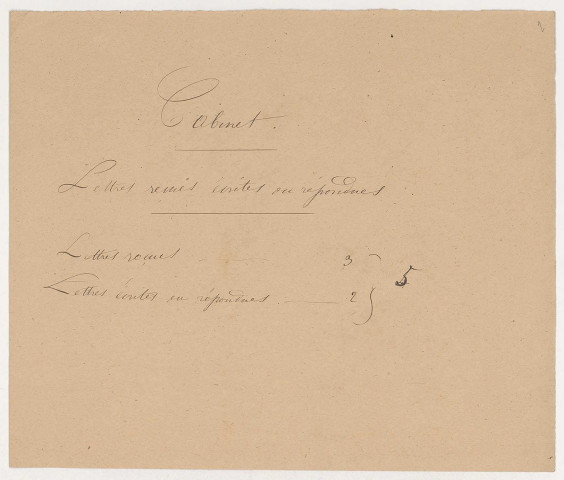 Cabinet.
Lettres reçues écrites ou répondues
Lettres reçues 3
Lettres écrites ou répondues 2 } 5